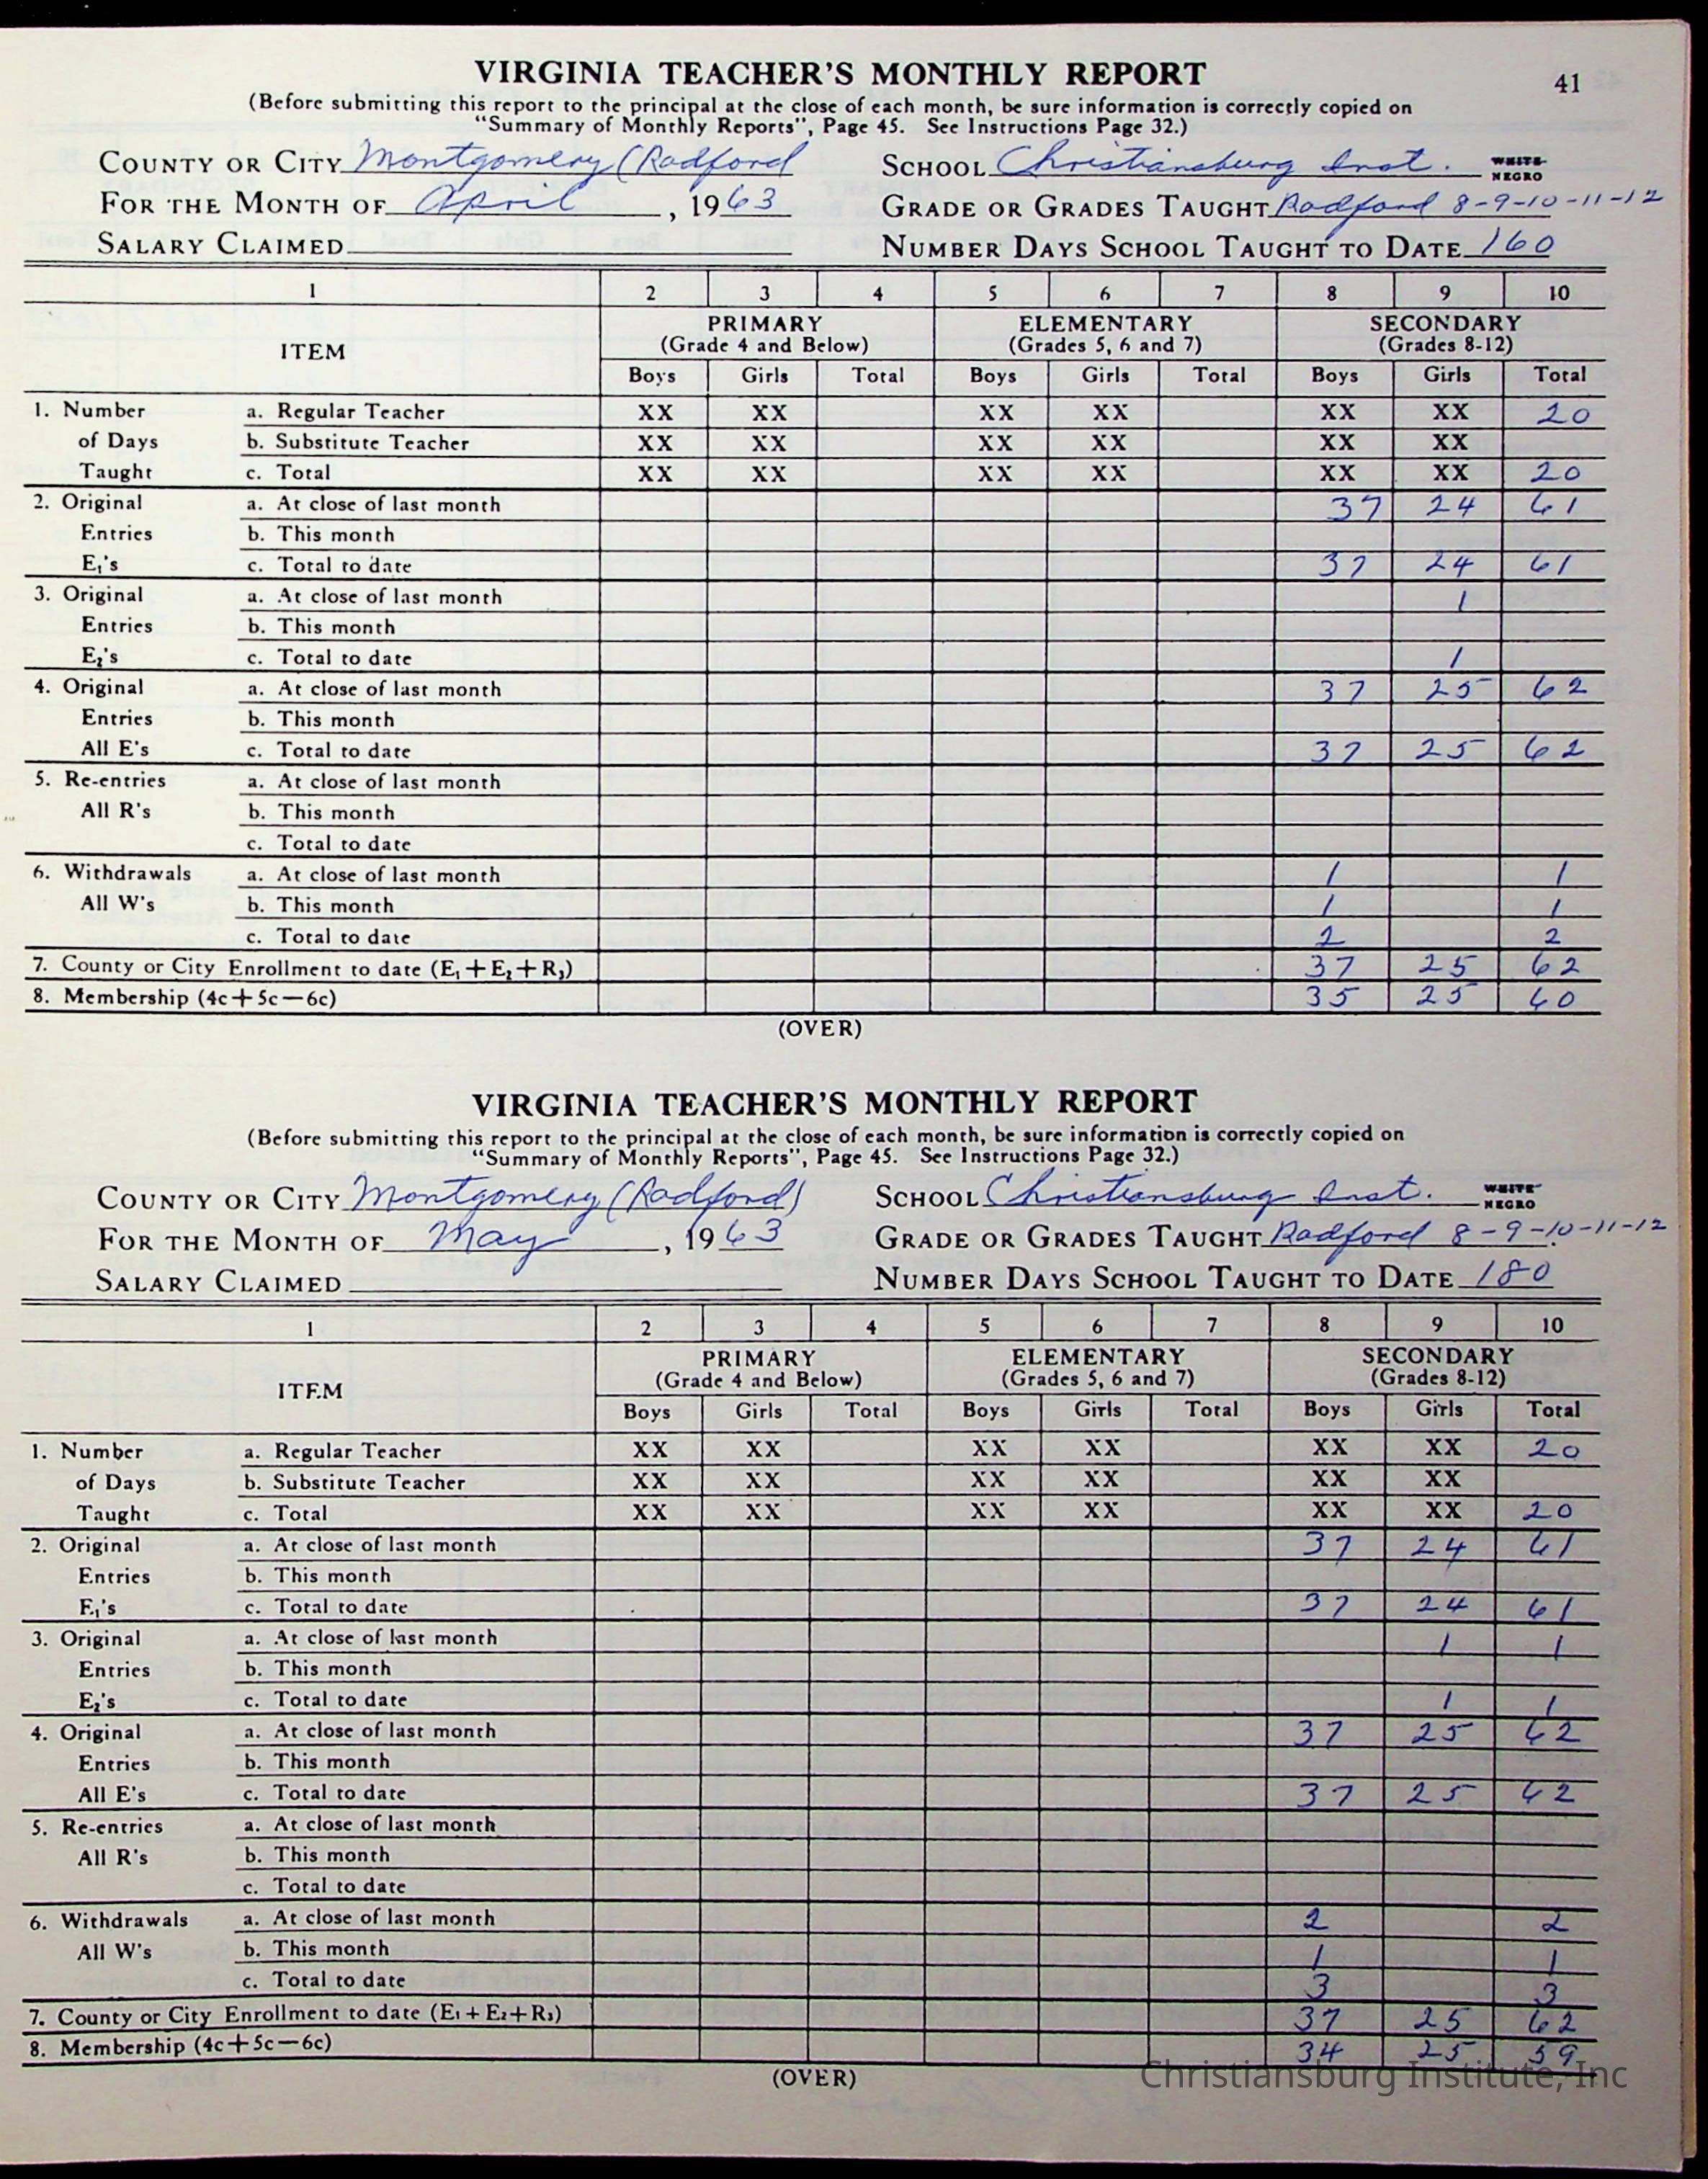 VIRGINIA TEACHER'S MONTHLY REPORT 41
(Before submitting this report to the principal at the close of each month, be sure information is correctly copied on
"Summary of Monthly Reports", Page 45. See Instructions Page 32.)
COUNTY OR CITY Montgomery (Radford SCHOOL Christiansburg Inst. WHITE
NEGRO
FOR THE MONTH OF April, 1963 GRADE OR GRADES TAUGHT Radford 8-9-10-11-12
SALARY CLAIMED NUMBER DAYS SCHOOL TAUGHT TO DATE 160
1 2 3 4 5 6 7 8 9 10
ITEM PRIMARY ELEMENTARY SECONDARY
(Grade 4 and Below) (Grades 5, 6 and 7) (Grades 8-12)
Boys Girls Total Boys Girls Total Boys Girls Total
1. Number a. Regular Teacher XX XX XX XX XX XX 20
of Days b. Substitute Teacher XX XX XX XX XX XX
Taught c. Total XX XX XX XX XX XX 20
2. Original a. At close of last month 37 24 61
Entries b. This month
E₁'s c. Total to date 37 24 61
3. Original a. At close of last month 1
Entries b. This month
E₂'s c. Total to date 1
4. Original a. At close of last month 37 25 62
Entries b. This month
All E's c. Total to date 37 25 62
5. Re-entries a. At close of last month
All R's b. This month
c. Total to date
6. Withdrawals a. At close of last month 1 1
All W's b. This month 1 1
c. Total to date 2 2
7. County or City Enrollment to date (E₁+E₂+R₃) 37 25 62
8. Membership (4c+5c—6c) 35 25 60
(OVER)
VIRGINIA TEACHER'S MONTHLY REPORT
(Before submitting this report to the principal at the close of each month, be sure information is correctly copied on
"Summary of Monthly Reports", Page 45. See Instructions Page 32.)
COUNTY OR CITY Montgomery (Radford) SCHOOL Christiansburg Inst. WHITE
NEGRO
FOR THE MONTH OF May, 1963 GRADE OR GRADES TAUGHT Radford 8-9-10-11-12
SALARY CLAIMED NUMBER DAYS SCHOOL TAUGHT TO DATE 180
1 2 3 4 5 6 7 8 9 10
ITEM PRIMARY ELEMENTARY SECONDARY
(Grade 4 and Below) (Grades 5, 6 and 7) (Grades 8-12)
Boys Girls Total Boys Girls Total Boys Girls Total
1. Number a. Regular Teacher XX XX XX XX XX XX 20
of Days b. Substitute Teacher XX XX XX XX XX XX
Taught c. Total XX XX XX XX XX XX 20
2. Original a. At close of last month 37 24 61
Entries b. This month
E₁'s c. Total to date 37 24 61
3. Original a. At close of last month 1 1
Entries b. This month
E₂'s c. Total to date 1 1
4. Original a. At close of last month 37 25 62
Entries b. This month
All E's c. Total to date 37 25 62
5. Re-entries a. At close of last month
All R's b. This month
c. Total to date
6. Withdrawals a. At close of last month 2 2
All W's b. This month 1 1
c. Total to date 3 3
7. County or City Enrollment to date (E₁+E₂+R₃) 37 25 62
8. Membership (4c+5c—6c) 34 25 59
(OVER)
Christiansburg Institute, Inc